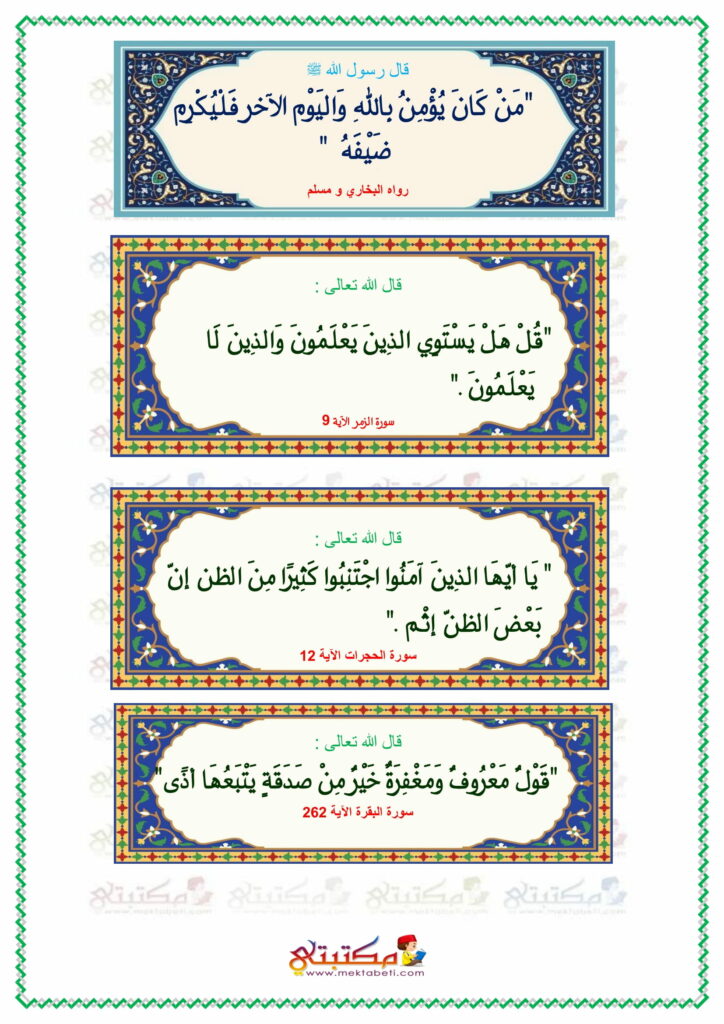 قال رسول الله ﷺ
"مَنْ كَانَ يُؤْمِنُ بِاللهِ وَاليَوْمِ الآخر فَلْيُكْرِمِ
ضَيْفَهُ "
رواه البخاري و مسلم
قال الله تعالى :
"قُلْ هَلْ يَسْتَوِي الذِينَ يَعْلَمُونَ وَالذِينَ لَا
يَعْلَمُونَ ."
سورة الزمر الآية 9
قال الله تعالى :
" يَا أيّهَا الذِينَ آمَنُوا اجْتَنِبُوا كَثِيرًا مِنَ الظن إنّ
بَعْضَ الظنّ إثْم ."
سورة الحجرات الآية 12
قال الله تعالى :
"قَوْلٌ مَعْرُوفٌ وَمَغْفِرَةٌ خَيْرٌ مِنْ صَدَقَةٍ يَتْبَعُهَا أذًى"
سورة البقرة الآية 262
مكتبتي
www.mektabeti.com